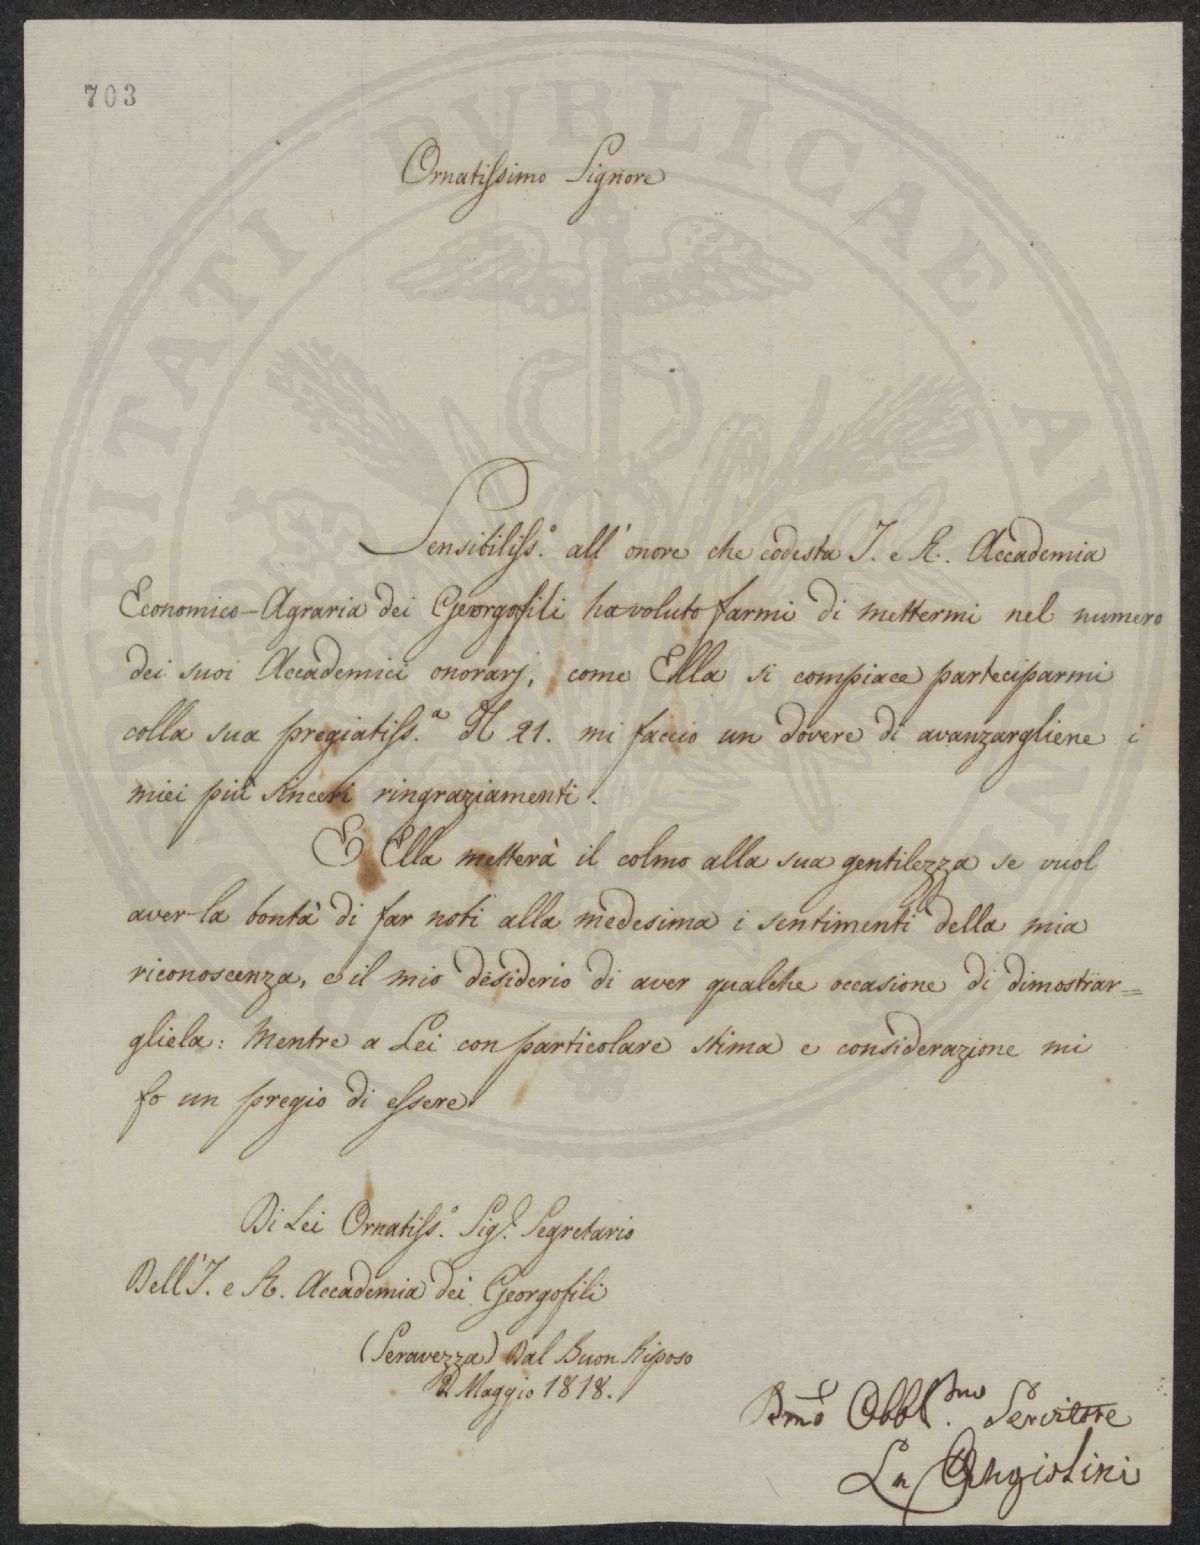 703
Ornatissimo Signore
Sensibiliss.º all' onore che codesta I. e R. Accademia
Economico-Agraria dei Georgofili ha voluto farmi di mettermi nel numero
dei suoi Accademici onorarj, come Ella si compiace parteciparmi
colla sua pregiatiss.ª 21. mi faccio un dovere di avanzargliene i
miei più sinceri ringraziamenti.
Ella metterà il colmo alla sua gentilezza se vuol
aver la bontà di far noti alla medesima i sentimenti della mia
riconoscenza, e il mio desiderio di aver qualche occasione di dimostrar=
gliela: Mentre a Lei con particolare stima e considerazione mi
fo un pregio di essere
Di Lei Ornatiss.º Sig.r Segretario
Dell'I. e R. Accademia dei Georgofili
(Seravezza) Dal Buon Riposo
2 Maggio 1818.
Obbl.mo Servitore
Angiolini
UTILITATI PVBLICAE